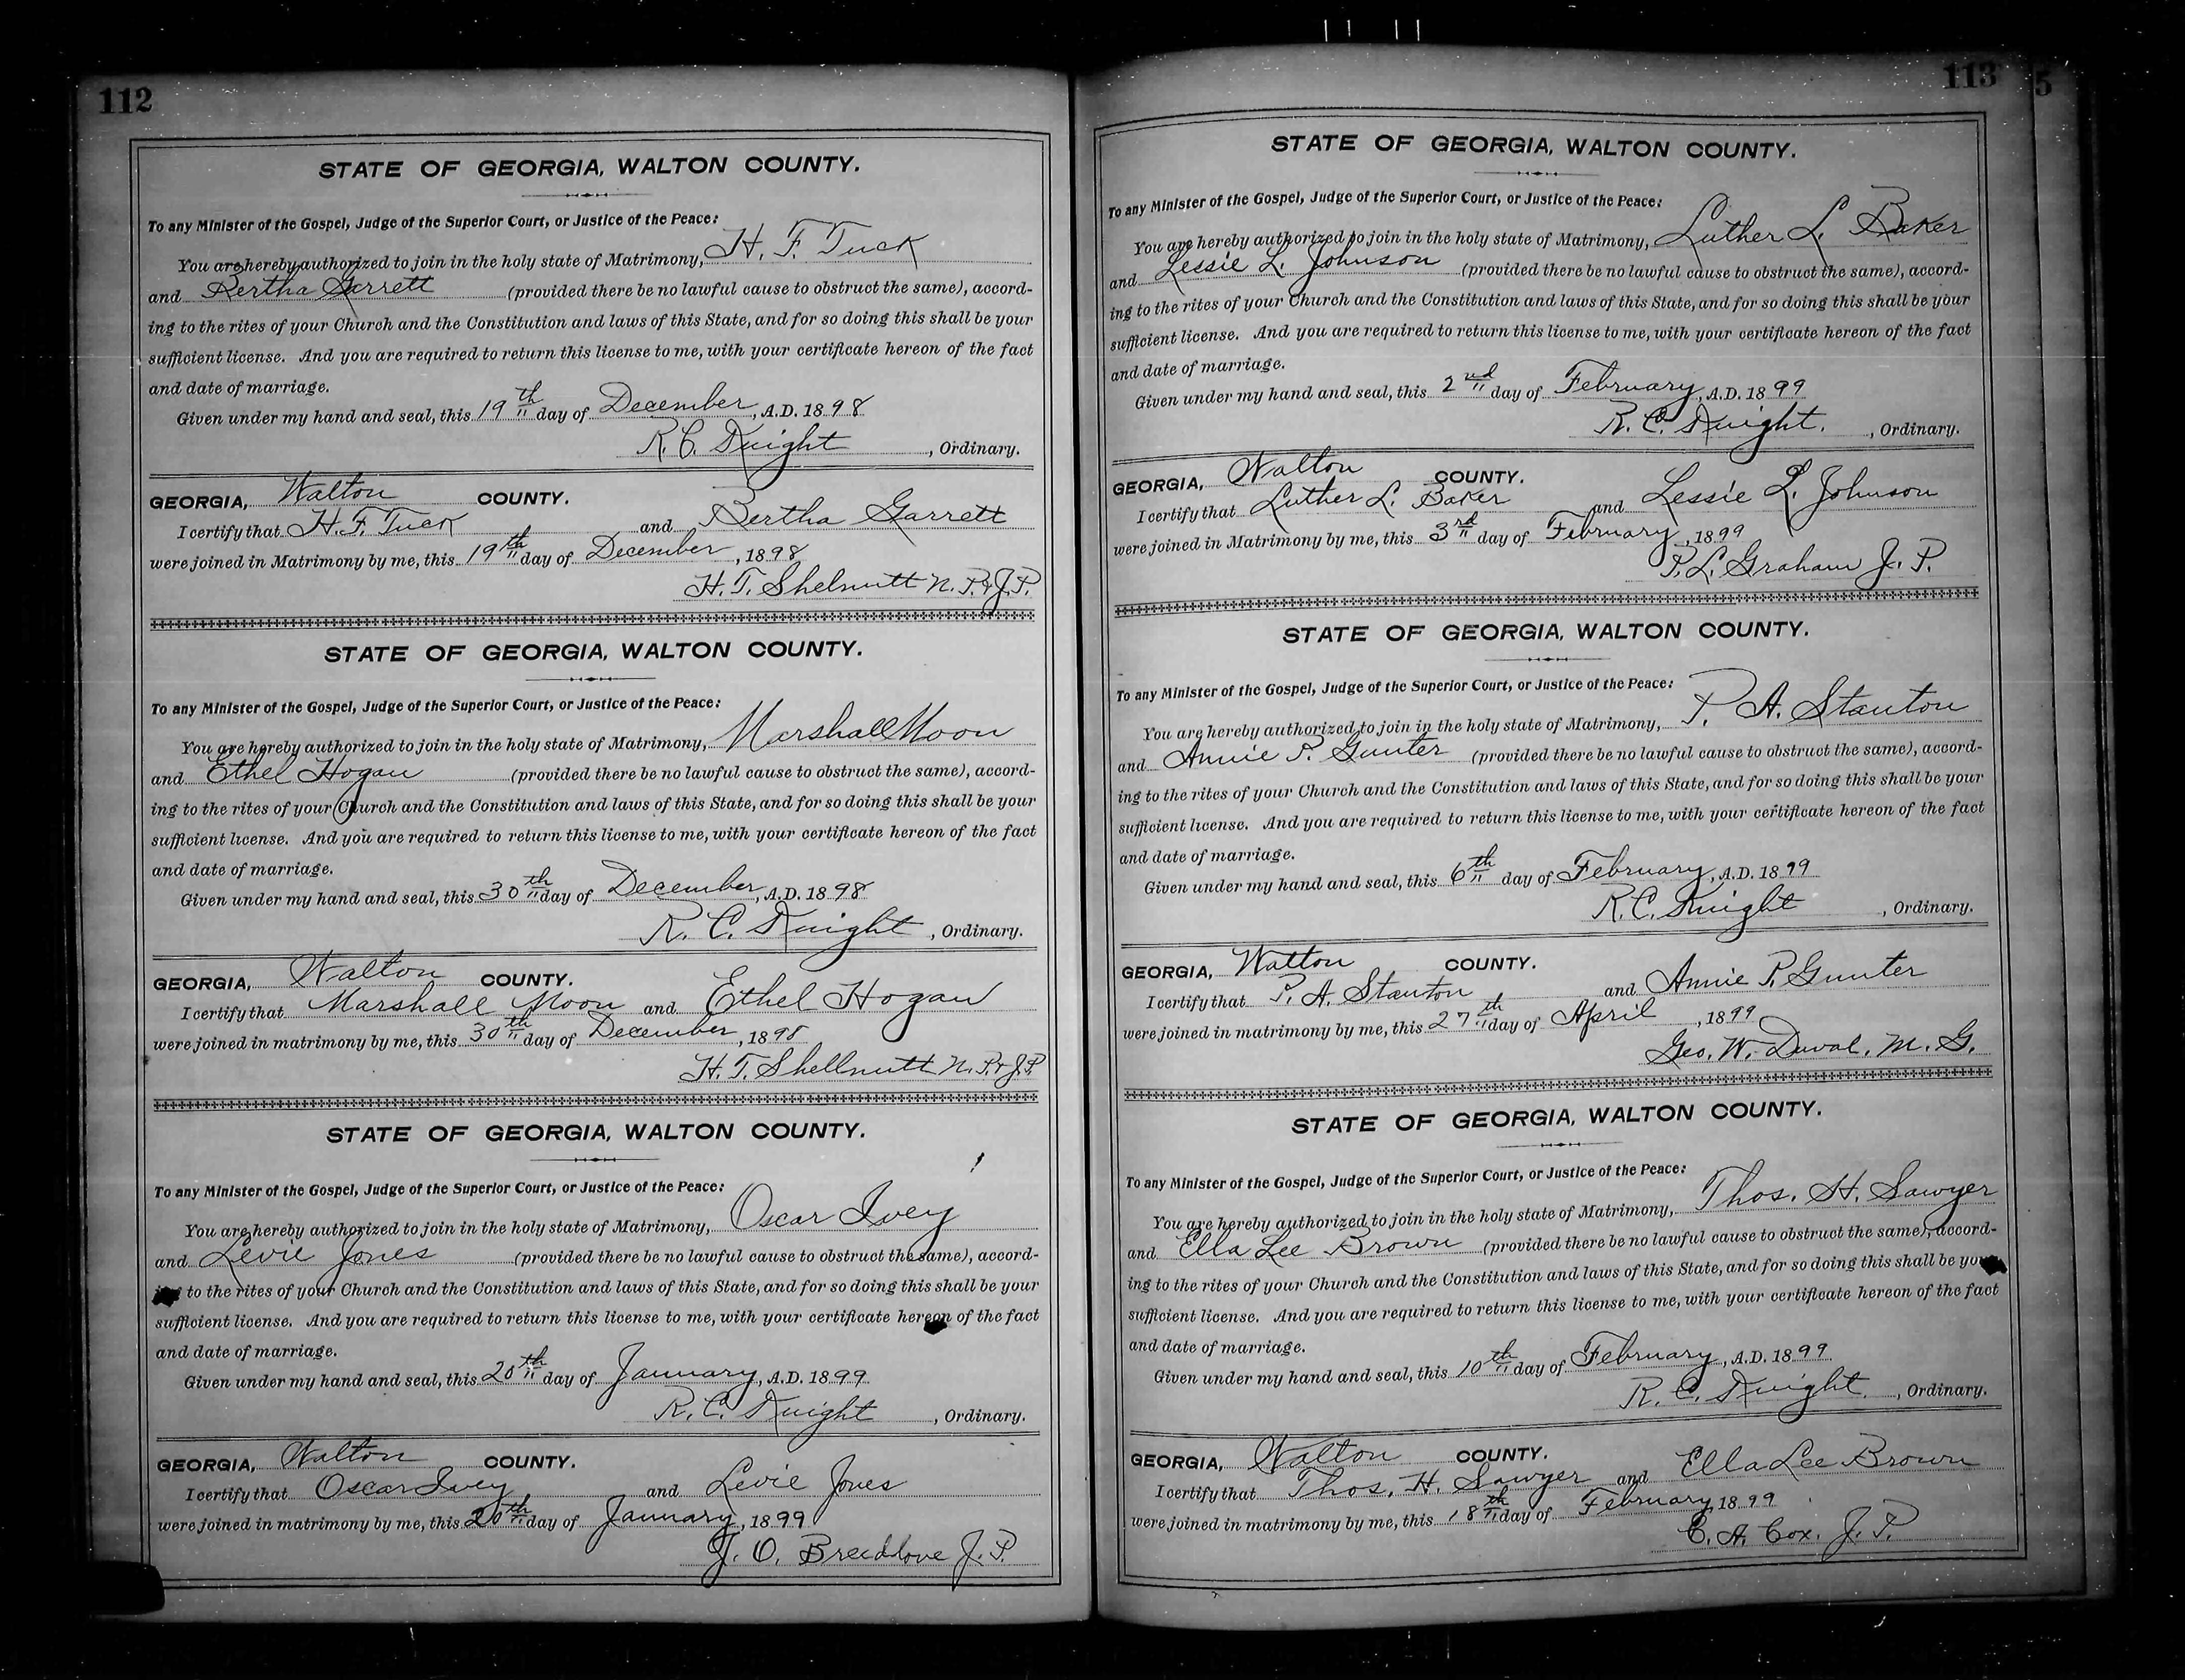 112
STATE OF GEORGIA, WALTON COUNTY.
To any Minister of the Gospel, Judge of the Superior Court, or Justice of the Peace:
You are hereby authorized to join in the holy state of Matrimony, H. F. Tuck
and Bertha Garrett (provided there be no lawful cause to obstruct the same), accord-
ing to the rites of your Church and the Constitution and laws of this State, and for so doing this shall be your
sufficient license. And you are required to return this license to me, with your certificate hereon of the fact
and date of marriage.
Given under my hand and seal, this 19th day of December, A.D. 1898
R. C. Knight, Ordinary.
GEORGIA, Walton COUNTY.
I certify that H. F. Tuck and Bertha Garrett
were joined in Matrimony by me, this 19th day of December, 1898
H. T. Shelnutt N. P. & J. P.
STATE OF GEORGIA, WALTON COUNTY.
To any Minister of the Gospel, Judge of the Superior Court, or Justice of the Peace:
You are hereby authorized to join in the holy state of Matrimony, Marshall Moon
and Ethel Hogan (provided there be no lawful cause to obstruct the same), accord-
ing to the rites of your Church and the Constitution and laws of this State, and for so doing this shall be your
sufficient license. And you are required to return this license to me, with your certificate hereon of the fact
and date of marriage.
Given under my hand and seal, this 30th day of December, A.D. 1898
R. C. Knight, Ordinary.
GEORGIA, Walton COUNTY.
I certify that Marshall Moon and Ethel Hogan
were joined in matrimony by me, this 30th day of December, 1898
H. T. Shellnutt N. P. & J. P.
STATE OF GEORGIA, WALTON COUNTY.
To any Minister of the Gospel, Judge of the Superior Court, or Justice of the Peace:
You are hereby authorized to join in the holy state of Matrimony, Oscar Ivey
and Levie Jones (provided there be no lawful cause to obstruct the same), accord-
ing to the rites of your Church and the Constitution and laws of this State, and for so doing this shall be your
sufficient license. And you are required to return this license to me, with your certificate hereon of the fact
and date of marriage.
Given under my hand and seal, this 20th day of January, A.D. 1899
R. C. Knight, Ordinary.
GEORGIA, Walton COUNTY.
I certify that Oscar Ivey and Levie Jones
were joined in matrimony by me, this 20th day of January, 1899
J. O. Breedlove J. P.
113 5
STATE OF GEORGIA, WALTON COUNTY.
To any Minister of the Gospel, Judge of the Superior Court, or Justice of the Peace:
You are hereby authorized to join in the holy state of Matrimony, Luther L. Baker
and Lessie L. Johnson (provided there be no lawful cause to obstruct the same), accord-
ing to the rites of your Church and the Constitution and laws of this State, and for so doing this shall be your
sufficient license. And you are required to return this license to me, with your certificate hereon of the fact
and date of marriage.
Given under my hand and seal, this 2nd day of February, A.D. 1899
R. C. Knight., Ordinary.
GEORGIA, Walton COUNTY.
I certify that Luther L. Baker and Lessie L. Johnson
were joined in Matrimony by me, this 3rd day of February, 1899
P. L. Graham J. P.
STATE OF GEORGIA, WALTON COUNTY.
To any Minister of the Gospel, Judge of the Superior Court, or Justice of the Peace:
You are hereby authorized to join in the holy state of Matrimony, P. A. Stanton
and Annie P. Gunter (provided there be no lawful cause to obstruct the same), accord-
ing to the rites of your Church and the Constitution and laws of this State, and for so doing this shall be your
sufficient license. And you are required to return this license to me, with your certificate hereon of the fact
and date of marriage.
Given under my hand and seal, this 6th day of February, A.D. 1899
R. C. Knight, Ordinary.
GEORGIA, Walton COUNTY.
I certify that P. A. Stanton and Annie P. Gunter
were joined in matrimony by me, this 27th day of April, 1899
Geo. W. Duval, M. G.
STATE OF GEORGIA, WALTON COUNTY.
To any Minister of the Gospel, Judge of the Superior Court, or Justice of the Peace:
You are hereby authorized to join in the holy state of Matrimony, Thos. H. Sawyer
and Ella Lee Brown (provided there be no lawful cause to obstruct the same), accord-
ing to the rites of your Church and the Constitution and laws of this State, and for so doing this shall be your
sufficient license. And you are required to return this license to me, with your certificate hereon of the fact
and date of marriage.
Given under my hand and seal, this 10th day of February, A.D. 1899
R. C. Knight., Ordinary.
GEORGIA, Walton COUNTY.
I certify that Thos. H. Sawyer and Ella Lee Brown
were joined in matrimony by me, this 18th day of February 1899
C. A. Cox. J. P.